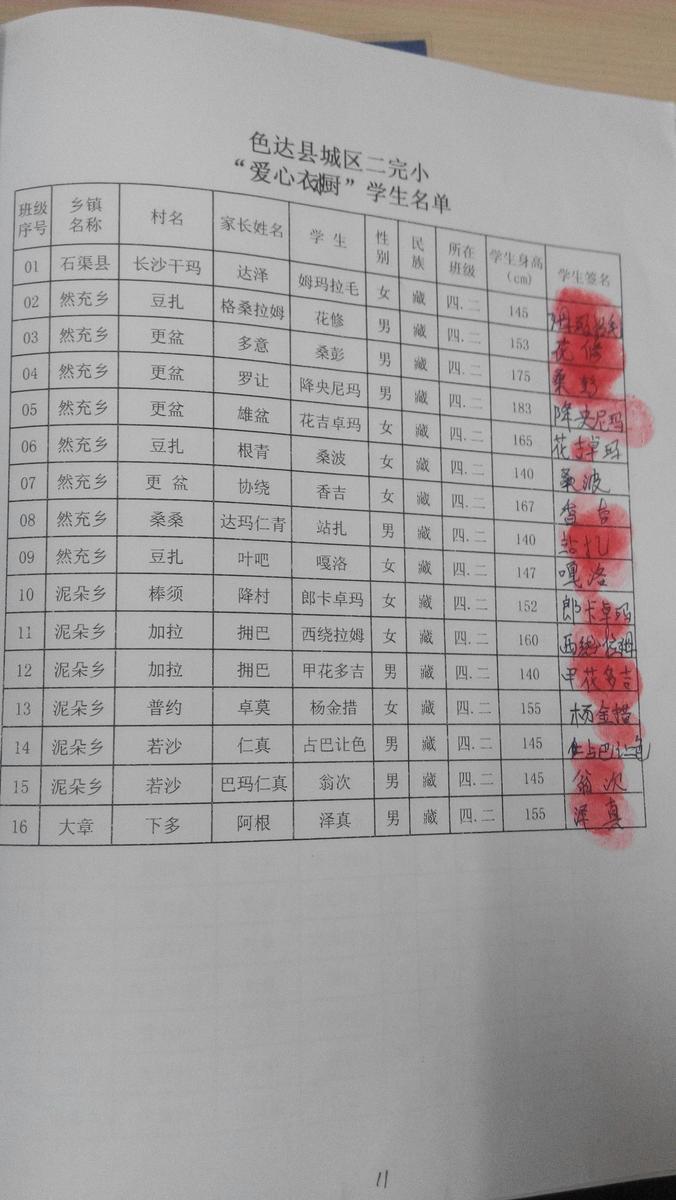 色达县城区二完小
“爱心衣厨”学生名单
班级序号 乡镇名称 村名 家长姓名 学 生 性别 民族 所在班级 学生身高(cm) 学生签名
01 石渠县 长沙干玛 达泽 姆玛拉毛 女 藏 四.二 145
02 然充乡 豆扎 格桑拉姆 花修 男 藏 四.二 153 花修
03 然充乡 更盆 多意 桑彭 男 藏 四.二 175 桑彭
04 然充乡 更盆 罗让 降央尼玛 男 藏 四.二 183 降央尼玛
05 然充乡 更盆 雄盆 花吉卓玛 女 藏 四.二 165 花吉卓玛
06 然充乡 豆扎 根青 桑波 女 藏 四.二 140 桑波
07 然充乡 更 盆 协绕 香吉 女 藏 四.二 167 香吉
08 然充乡 桑桑 达玛仁青 站扎 男 藏 四.二 140 站扎
09 然充乡 豆扎 叶吧 嘎洛 女 藏 四.二 147 嘎洛
10 泥朵乡 棒须 降村 郎卡卓玛 女 藏 四.二 152 郎卡卓玛
11 泥朵乡 加拉 拥巴 西绕拉姆 女 藏 四.二 160 西绕拉姆
12 泥朵乡 加拉 拥巴 甲花多吉 男 藏 四.二 140 甲花多吉
13 泥朵乡 普约 卓莫 杨金措 女 藏 四.二 155 杨金措
14 泥朵乡 若沙 仁真 占巴让色 男 藏 四.二 145 占巴让色
15 泥朵乡 若沙 巴玛仁真 翁次 男 藏 四.二 145 翁次
16 大章 下多 阿根 泽真 男 藏 四.二 155 泽真
11